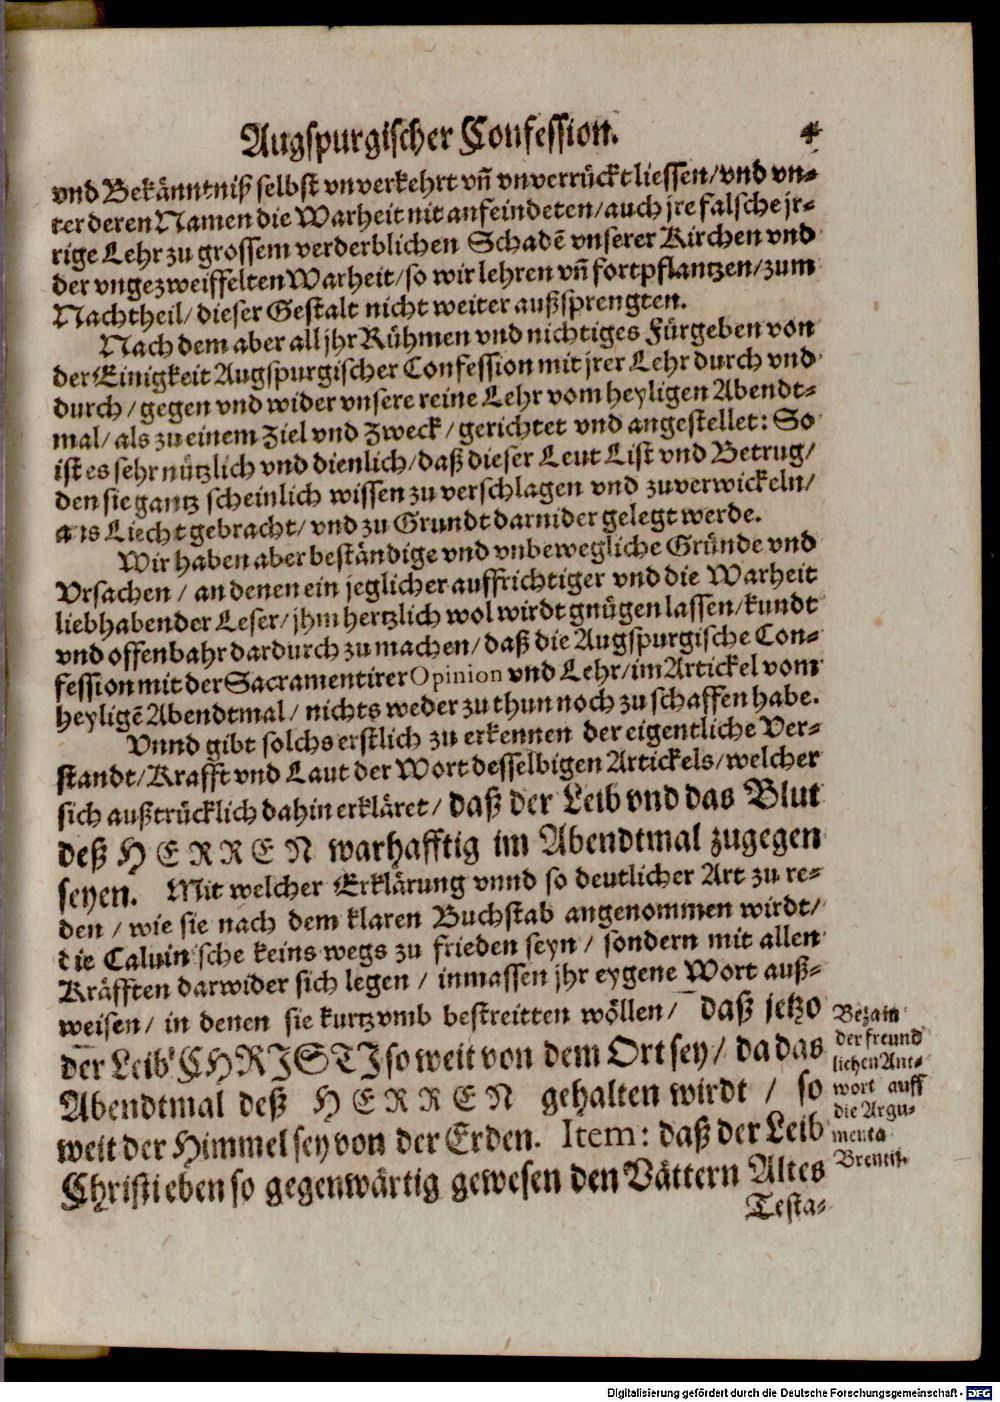 Augspurgischer Confession. 4
vnd Bekänntniß selbst vnverkehrt vñ vnverrückt liessen/ vnd vn-
ter deren Namen die Warheit nit anfeindeten/ auch jre falsche jr-
rige Lehr zu grossem verderblichen Schadẽ vnserer Kirchen vnd
der vngezweiffelten Warheit/ so wir lehren vñ fortpflantzen/ zum
Nachtheil/ dieser Gestalt nicht weiter außsprengten.
Nach dem aber all jhr Rühmen vnd nichtiges Fürgeben von
der Einigkeit Augspurgischer Confession mit jrer Lehr durch vnd
durch/ gegen vnd wider vnsere reine Lehr vom heyligen Abendt-
mal/ als zu einem Ziel vnd Zweck/ gerichtet vnd angestellet: So
ist es sehr nützlich vnd dienlich/ daß dieser Leut List vnd Betrug/
den sie gantz scheinlich wissen zu verschlagen vnd zuverwickeln/
ans Liecht gebracht/ vnd zu Grundt darnider gelegt werde.
Wir haben aber beständige vnd vnbewegliche Gründe vnd
Vrsachen/ an denen ein jeglicher auffrichtiger vnd die Warheit
liebhabender Leser/ jhm hertzlich wol wirdt gnügen lassen/ kundt
vnd offenbahr dardurch zu machen/ daß die Augspurgische Con-
fession mit der Sacramentirer Opinion vnd Lehr/ im Artickel vom
heyligẽ Abendtmal/ nichts weder zu thun noch zu schaffen habe.
Vnnd gibt solchs erstlich zu erkennen der eigentliche Ver-
standt/ Krafft vnd Laut der Wort desselbigen Artickels/ welcher
sich außtrücklich dahin erkläret/ daß der Leib vnd das Blut
deß HERREN warhafftig im Abendtmal zugegen
seyen. Mit welcher Erklärung vnnd so deutlicher Art zu re-
den/ wie sie nach dem klaren Buchstab angenommen wirdt/
die Caluinische keins wegs zu frieden seyn/ sondern mit allen
Kräfften darwider sich legen/ inmassen jhr eygene Wort auß-
weisen/ in denen sie kurtzvmb bestreitten wöllen/ daß jetzo
der Leib CHRISTI so weit von dem Ort sey/ da das
Abendtmal deß HERREN gehalten wirdt/ so
weit der Himmel sey von der Erden. Item: daß der Leib
Christi eben so gegenwärtig gewesen den Vättern Altes
Testa-
Beza in
der freund
lichen Ant-
wort auff
die Argu-
menta
Brentij.
Digitalisierung gefördert durch die Deutsche Forschungsgemeinschaft - DFG